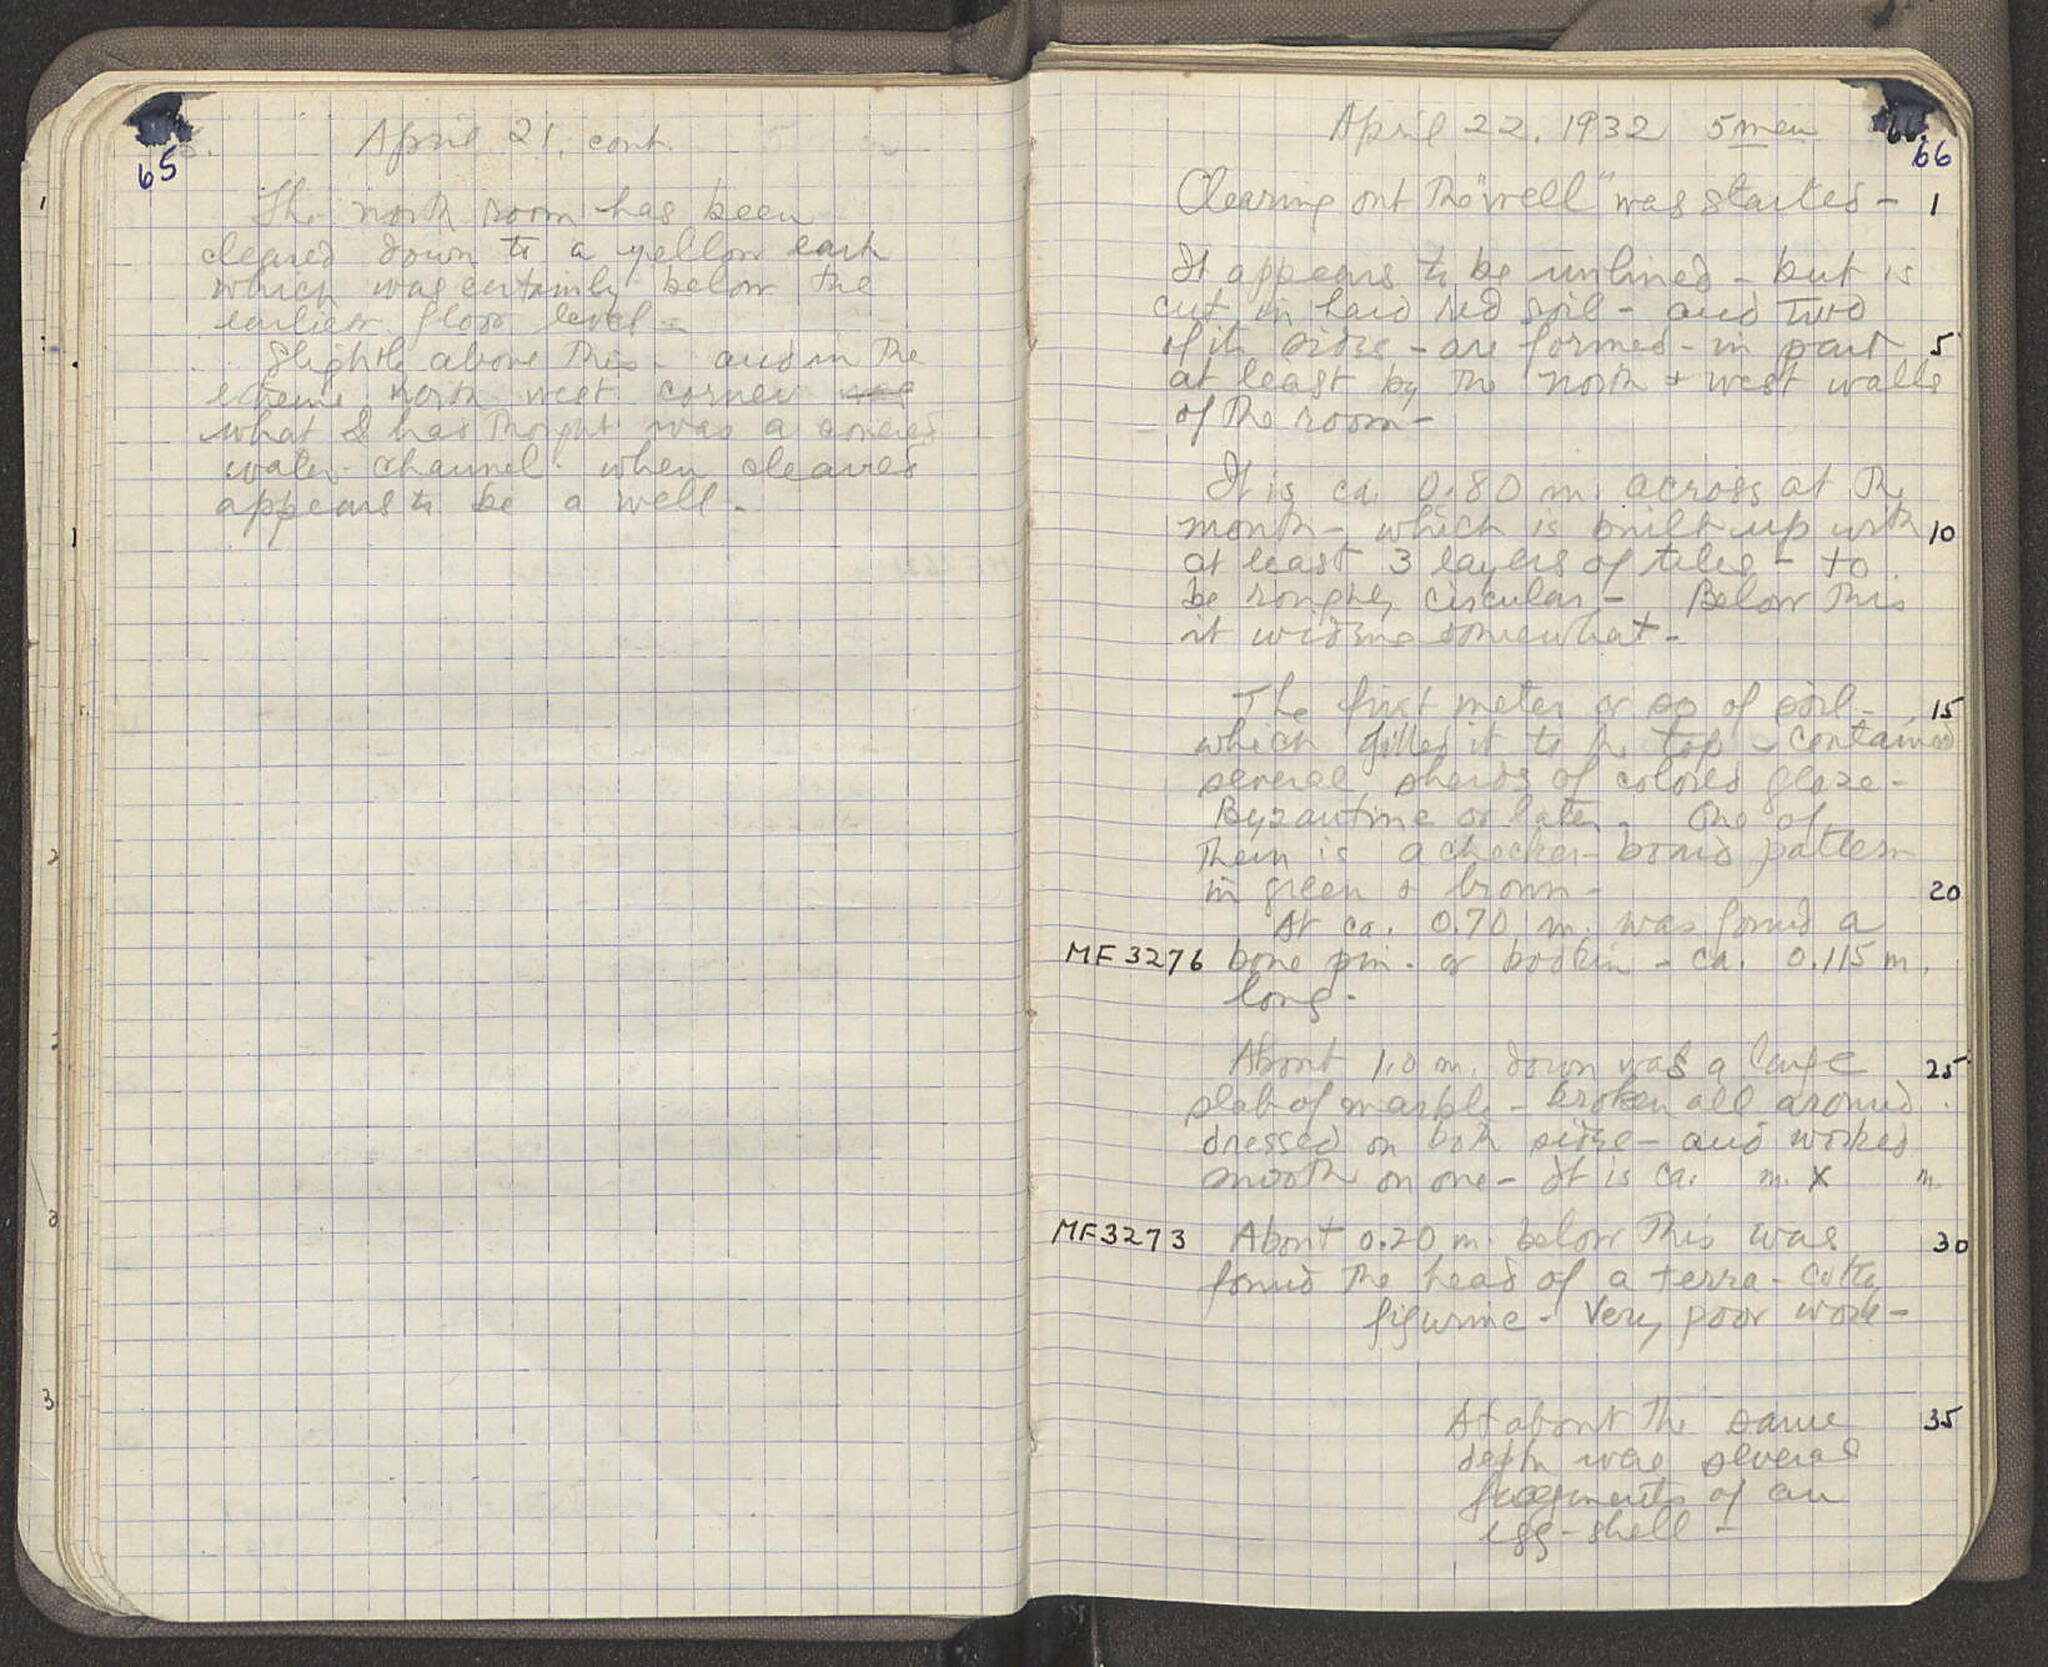 65
April 21, cont.
The north room has been
cleared down to a yellow earth
which was certainly below the
earlier floor level -
Slightly above this - and in the
extreme north west corner was
what I had thought was a covered
water channel - when cleared
appears to be a well -
April 22. 1932 5 men
66
Clearing out the "well" was started - 1
It appears to be unlined - but is
cut in hard red soil - and two
of its sides - are formed - in part 5
at least by the north + west walls
of the room -
It is ca. 0.80 m. across at the
mouth - which is built up with 10
at least 3 layers of tiles - to
be roughly circular - Below this
it widens somewhat -
The first meter or so of soil - 15
which filled it to the top - contained
several sherds of colored glaze -
Byzantine or later - One of
them is a checker-board pattern
in green + brown - 20
At ca. 0.70 m. was found a
MF 3276 bone pin - or bodkin - ca. 0.115 m.
long -
About 1.0 m. down was a large 25
slab of marble - broken all around
dressed on both sides - and worked
smooth on one - It is ca. m. x m.
MF 3273 About 0.20 m. below this was 30
found the head of a terra-cotta
figurine - Very poor work -
At about the same 35
depth was several
fragments of an
egg-shell -
1
1
2
3
3